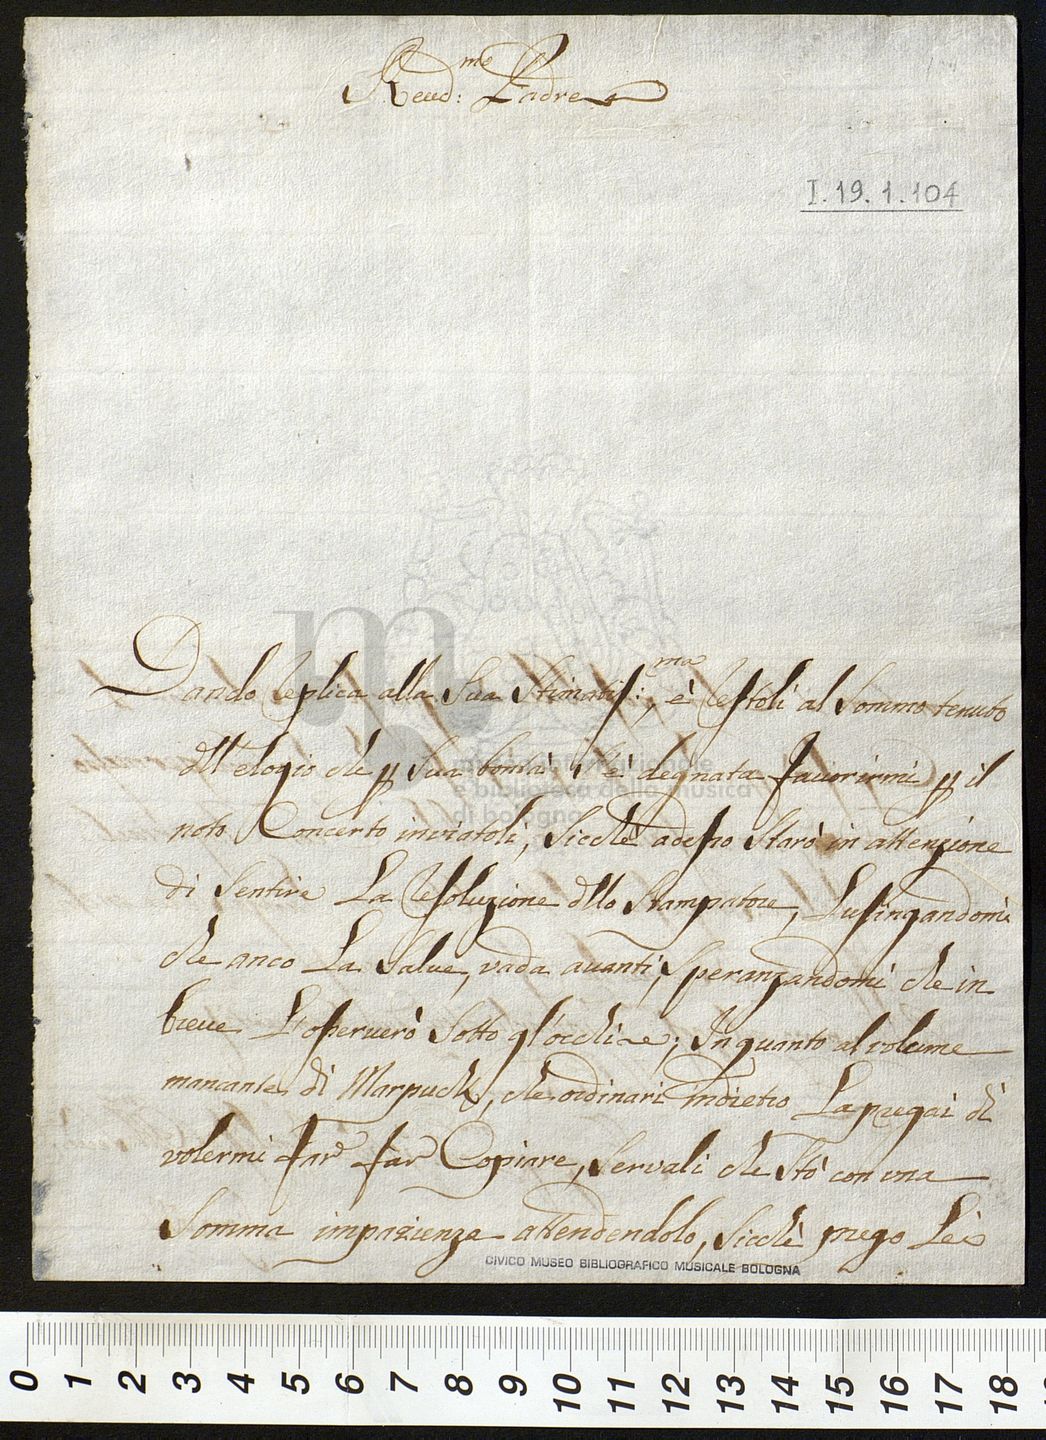 Reud:me Padre
I.19.1.104
Dando replica alla Sua Stimatiss:ma, è restoli al Sommo tenuto
dll'elogio che p Sua bontà s'è degnata fauorirmi p il
noto Concerto inviatoli, Sicchè adesso Starò in attenzione
di Sentire La resoluzione dllo Stampatore, Lusingandomi
che anco La Salue, vada auanti, Speranzandomi che in
breue L'osseruerò Sotto gl'occhi e; In quanto al volume
mancante di Marpuch, che ordinari indietro La pregai di
volermi far far Copiare, Servali che Stò con una
Somma impazienza attendendolo, Sicchè prego Lei
museo internazionale
e biblioteca della musica
di bologna
CIVICO MUSEO BIBLIOGRAFICO MUSICALE BOLOGNA
0 1 2 3 4 5 6 7 8 9 10 11 12 13 14 15 16 17 18